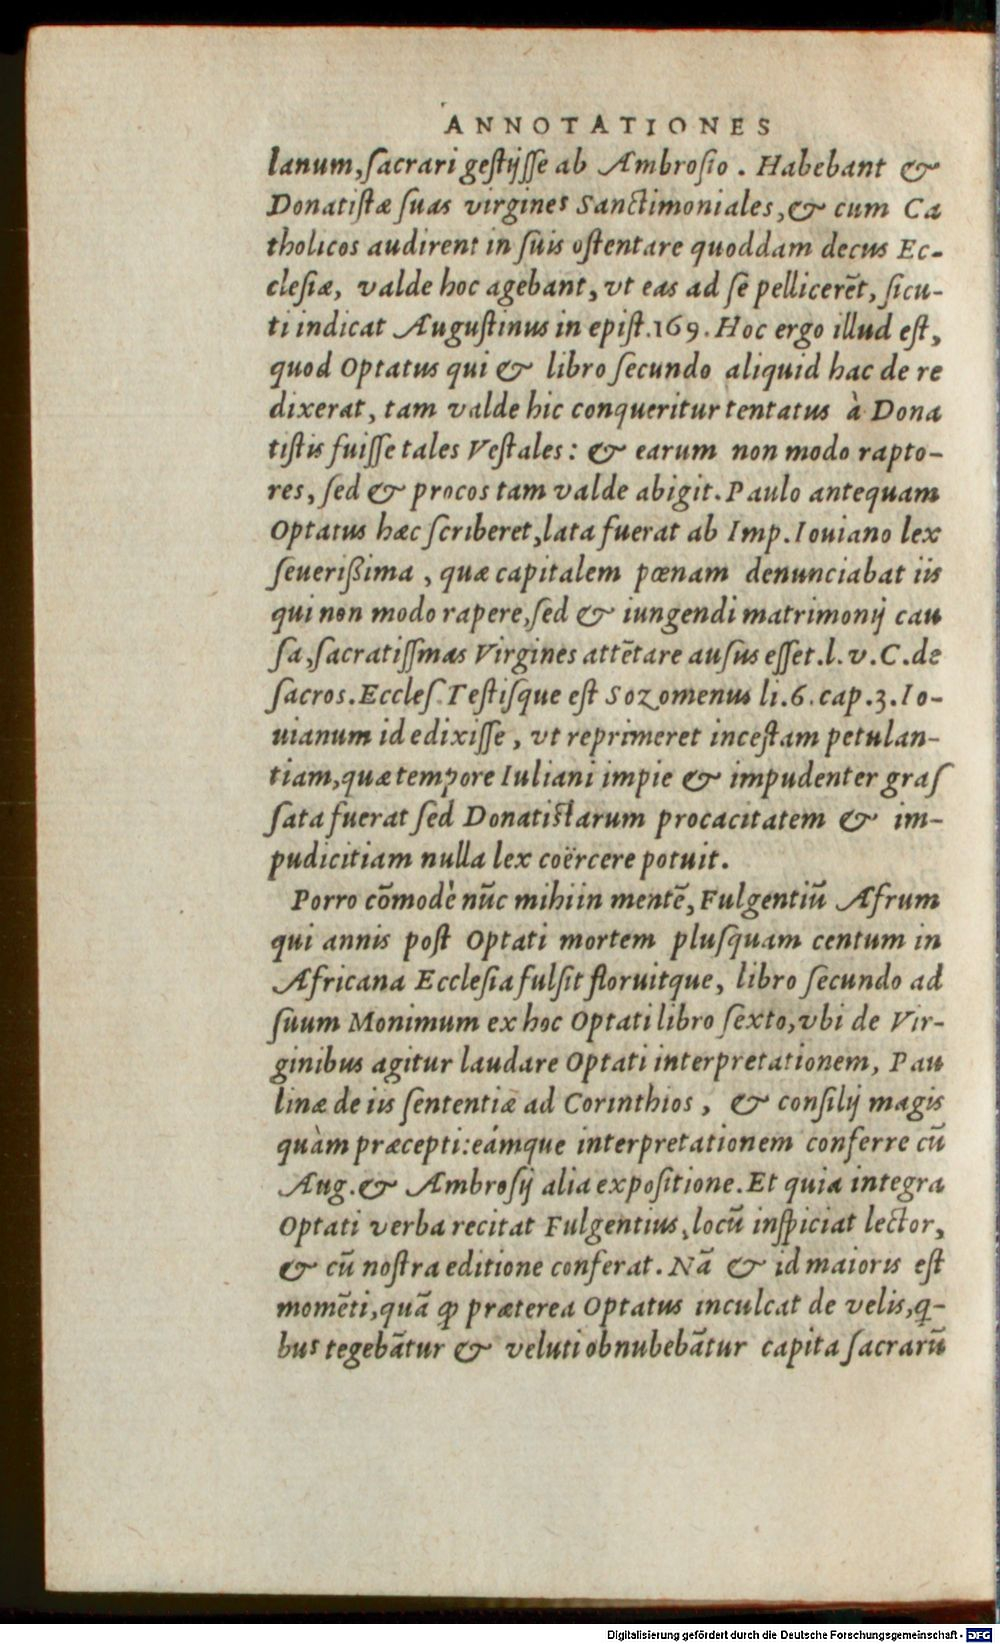 ANNOTATIONES
lanum, ſacrari geſtijſſe ab Ambroſio. Habebant &
Donatiſtæ ſuas virgines Sanctimoniales, & cum Ca
tholicos audirent in ſuis oſtentare quoddam decus Ec-
cleſiæ, valde hoc agebant, vt eas ad ſe pellicerēt, ſicu-
ti indicat Auguſtinus in epiſt.169. Hoc ergo illud eſt,
quod Optatus qui & libro ſecundo aliquid hac de re
dixerat, tam valde hic conqueritur tentatus à Dona
tiſtis fuiſſe tales Veſtales: & earum non modo rapto-
res, ſed & procos tam valde abigit. Paulo antequam
Optatus hæc ſcriberet, lata fuerat ab Imp. Iouiano lex
ſeuerißima, quæ capitalem pœnam denunciabat iis
qui non modo rapere, ſed & iungendi matrimonij cau
ſa, ſacratiſſmas Virgines attētare auſus eſſet. l. v. C. de
ſacros. Eccleſ. Teſtiſque eſt Sozomenus li. 6. cap. 3. Io-
uianum id edixiſſe, vt reprimeret inceſtam petulan-
tiam, quæ tempore Iuliani impie & impudenter graſ
ſata fuerat ſed Donatiſtarum procacitatem & im-
pudicitiam nulla lex coërcere potuit.
Porro cōmodè nūc mihi in mentē, Fulgentiū Afrum
qui annis poſt Optati mortem pluſquam centum in
Africana Eccleſia fulſit floruitque, libro ſecundo ad
ſuum Monimum ex hoc Optati libro ſexto, vbi de Vir-
ginibus agitur laudare Optati interpretationem, Pau
linæ de iis ſententiæ ad Corinthios, & conſilij magis
quàm præcepti: eámque interpretationem conferre cū
Aug. & Ambroſij alia expoſitione. Et quia integra
Optati verba recitat Fulgentius, locū inſpiciat lector,
& cū noſtra editione conferat. Nā & id maioris eſt
momēti, quā ꝙ præterea Optatus inculcat de velis, q̄-
bus tegebātur & veluti obnubebātur capita ſacrarū
Digitalisierung gefördert durch die Deutsche Forschungsgemeinschaft - DFG